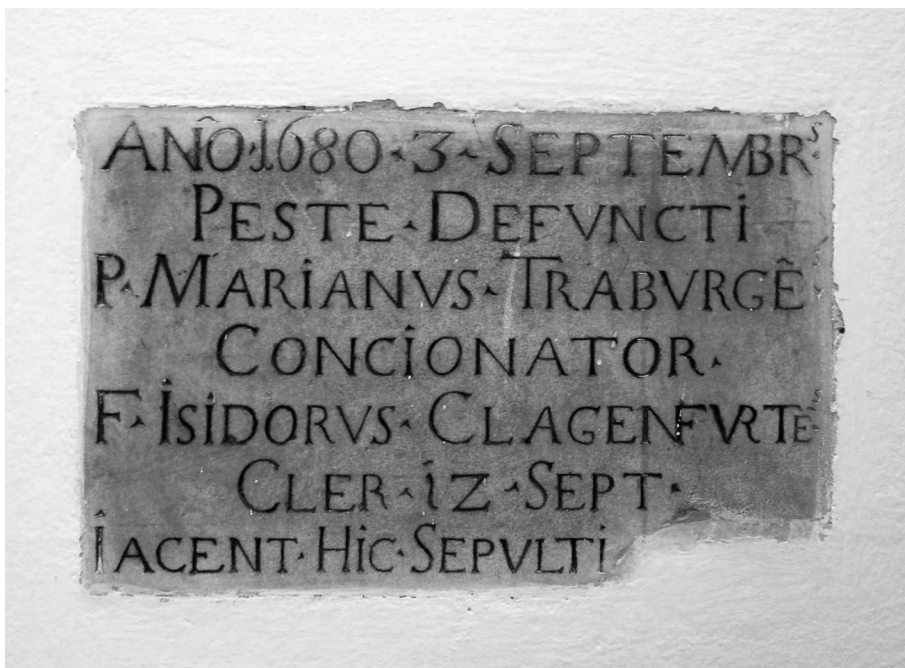 ANNO·1680·3·SEPTEMBRˢ·
PESTE·DEFVNCTI
P·MARIANVS·TRABVRGÊˢ·
CONCIONATOR·
F·ISIDORVS·CLAGENFVRTEˢ·
CLER·iZ·SEPT·
IACENT·HIC·SEPVLTI